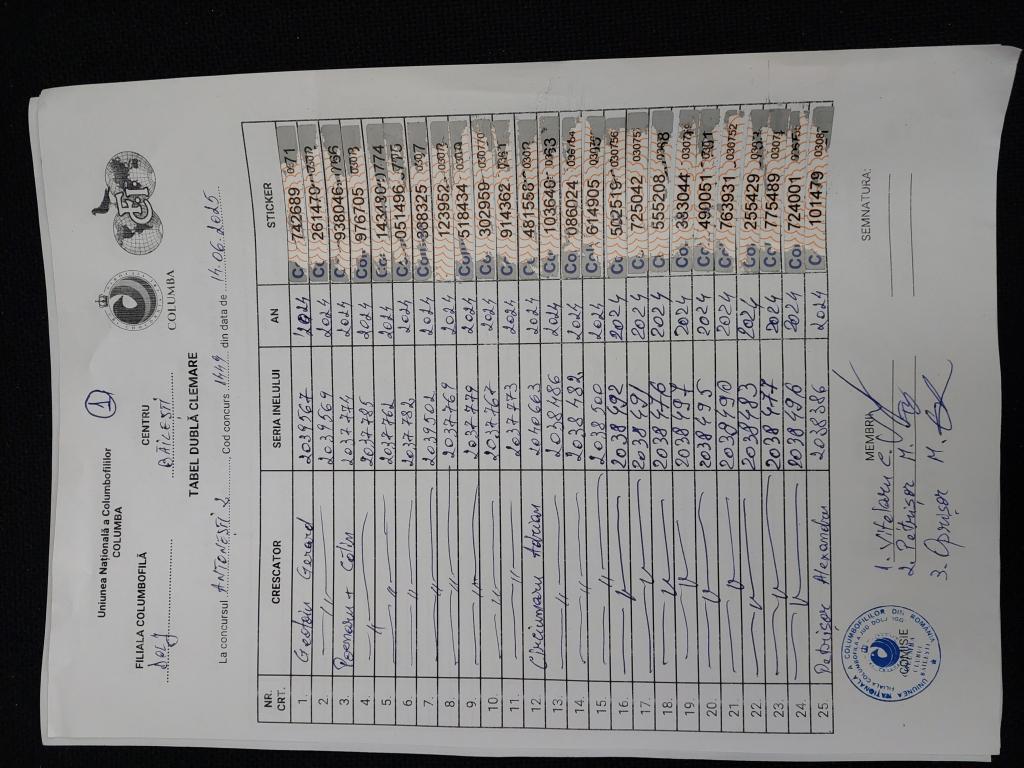 1
Uniunea Națională a Columbofililor
COLUMBA
COLUMBA
FCI
FILIALA COLUMBOFILĂ
Dolj
CENTRU
BĂILEȘTI
TABEL DUBLĂ CLEMARE
La concursul ANTONEȘTI 2 Cod concurs 1449 din data de 14.06.2025
NR. CRT. CRESCATOR SERIA INELULUI AN STICKER
1. Gerard 2039967 2024 742689
2. —"— 2039969 2024 261470
3. Poenaru + Călin 2037774 2024 938046
4. —"— 2037785 2024 976705
5. —"— 2037762 2024 143480
6. —"— 2037782 2024 051496
7. —"— 2039502 2024 968325
8. —"— 2037769 2024 123952 03012
9. —"— 2037779 2024 518434
10. —"— 2037767 2024 302959 030770
11. —"— 2037773 2024 914362
12. Adrian 2040663 2024 481558
13. —"— 2038486 2024 103640
14. —"— 2038482 2024 086024
15. —"— 2038500 2024 614905
16. —"— 2038492 2024 502519 030756
17. —"— 2038491 2024 725042 030757
18. —"— 2038476 2024 555208
19. —"— 2038497 2024 383044
20. —"— 2038495 2024 490051
21. —"— 2038490 2024 763931 030752
22. —"— 2038483 2024 255429
23. —"— 2038477 2024 775489
24. —"— 2038496 2024 724001
25. Petrișor Alexandru 2038386 2024 101479
MEMBRI: SEMNATURA:
1. Vitelaru C.
2. Petrișor M.
3. Oprișor M.
UNIUNEA NAȚIONALĂ A COLUMBOFILILOR DIN ROMÂNIA
COMISIE